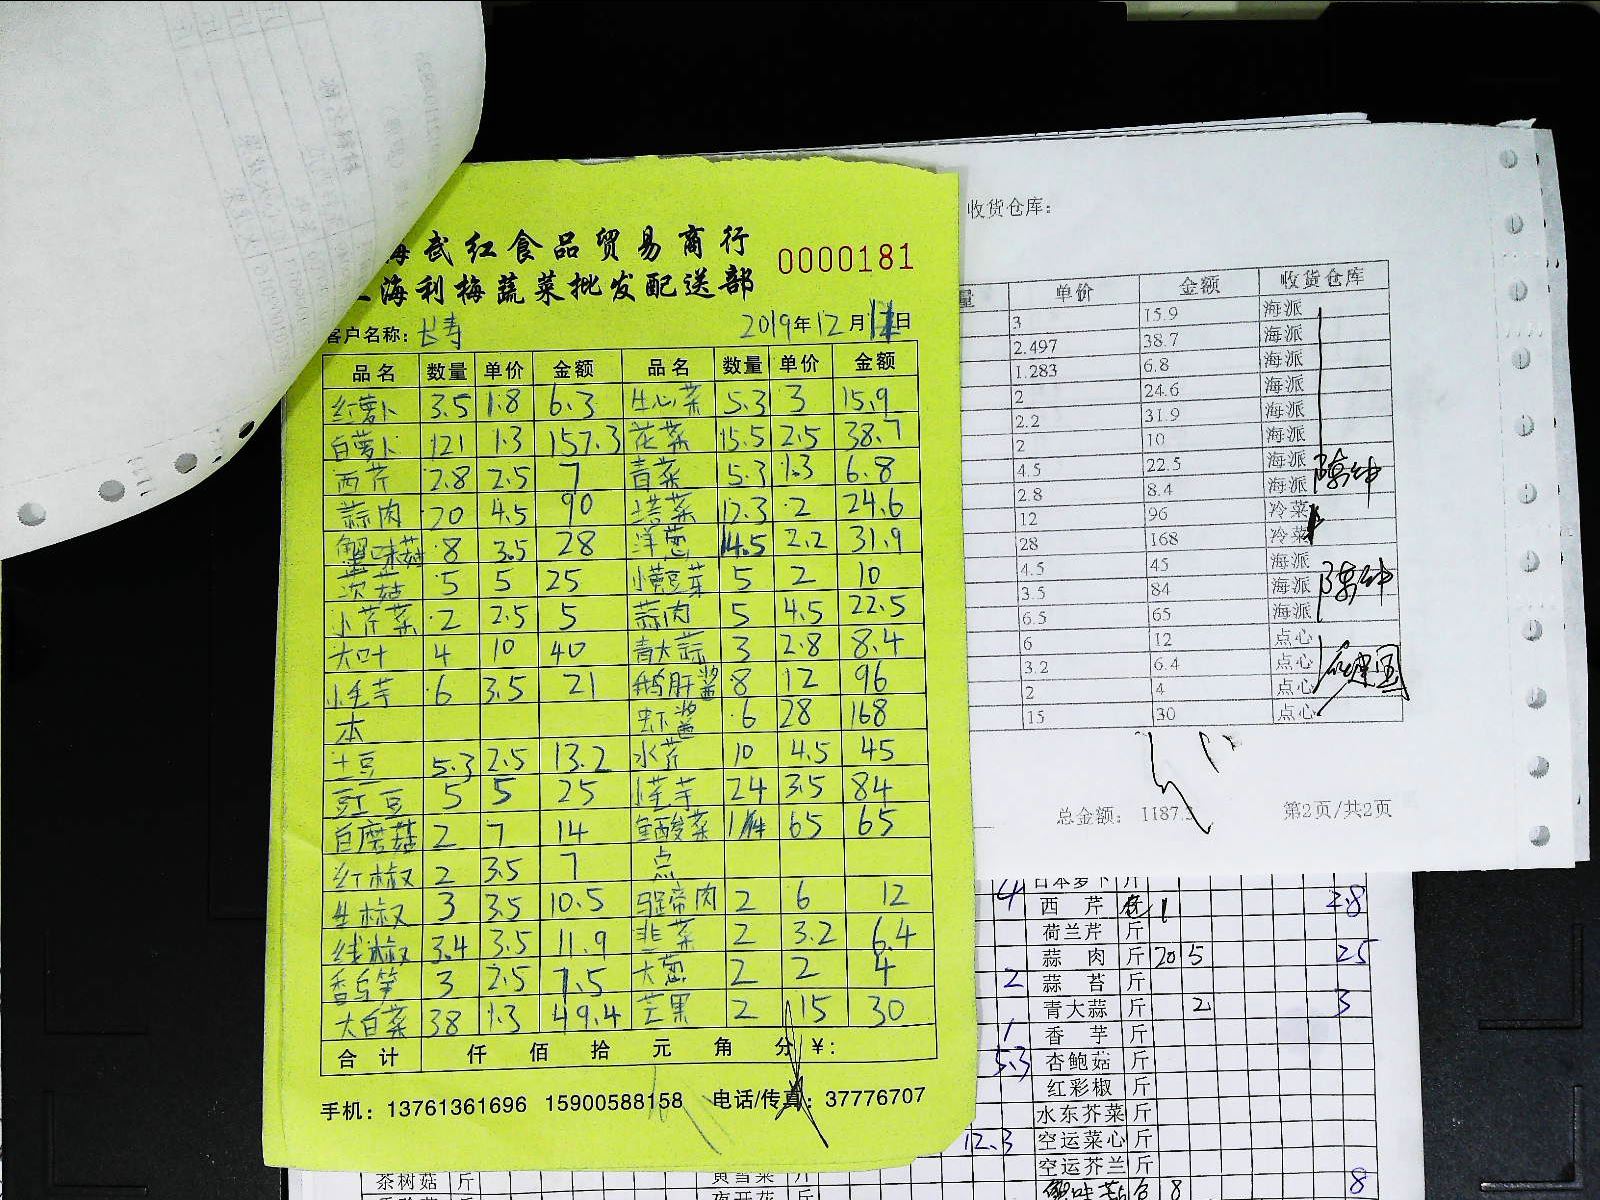 武红食品贸易商行
海利梅蔬菜批发配送部
0000181
客户名称：长寿 2019年12月11日
品名 数量 单价 金额 品名 数量 单价 金额
红萝卜 3.5 1.8 6.3 生心菜 5.3 3 15.9
白萝卜 121 1.3 157.3 花菜 15.5 2.5 38.7
西芹 2.8 2.5 7 青菜 5.3 1.3 6.8
蒜肉 20 4.5 90 塔菜 12.3 2 24.6
蟹味菇 8 3.5 28 洋葱 14.5 2.2 31.9
茨菇 5 5 25 小黄豆菜 5 2 10
小芹菜 2 2.5 5 蒜肉 5 4.5 22.5
大叶 4 10 40 青大蒜 3 2.8 8.4
小毛芋 6 3.5 21 鹅肝酱 8 12 96
本 虾酱 6 28 168
土豆 5.3 2.5 13.2 水芹 10 4.5 45
豇豆 5 5 25 小毛芋 24 3.5 84
白磨菇 2 7 14 鱼酸菜 1/14 65 65
红椒 2 3.5 7 点
生椒 3 3.5 10.5 马蹄肉 2 6 12
线椒 3.4 3.5 11.9 韭菜 2 3.2 6.4
香乌笋 3 2.5 7.5 大葱 2 2 4
大白菜 38 1.3 49.4 芒果 2 15 30
合计 仟 佰 拾 元 角 分 ¥：
手机：13761361696 15900588158 电话/传真：37776707
收货仓库：
量 单价 金额 收货仓库
3 15.9 海派
2.497 38.7 海派
1.283 6.8 海派
2 24.6 海派
2.2 31.9 海派
2 10 海派
4.5 22.5 海派
2.8 8.4 海派
12 96 冷菜
28 168 冷菜
4.5 45 海派
3.5 84 海派
6.5 65 海派
6 12 点心
3.2 6.4 点心
2 4 点心
15 30 点心
总金额： 1187.3 第2页/共2页
4 日本萝卜 斤
西芹 1 2.8
荷兰芹 斤
蒜肉 斤 20 5 25
2 蒜苔 斤
青大蒜 斤 2 3
1 香芋 斤
5.3 杏鲍菇 斤
红彩椒 斤
水东芥菜 斤
12.3 空运菜心 斤
空运芥兰 斤
茶树菇 斤 黄雪菜 斤
蟹味菇 8 8